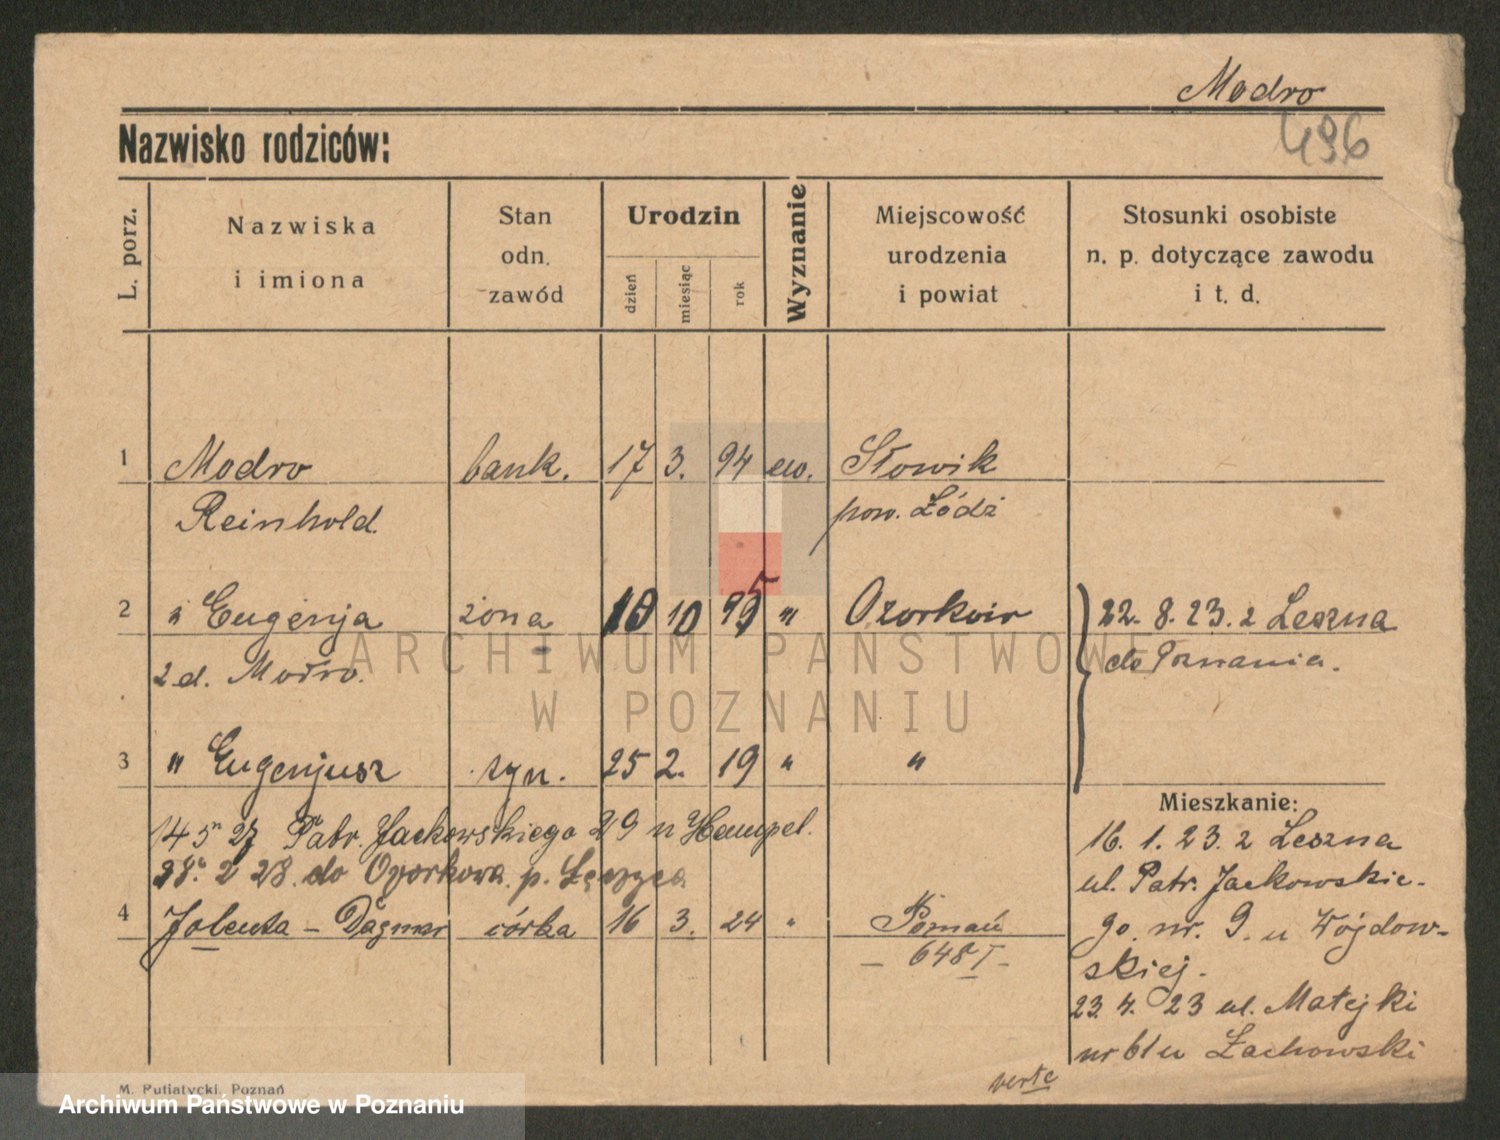 Modro
496
Nazwisko rodziców:
L. porz.
Nazwiska
i imiona
Stan
odn.
zawód
Urodzin
dzień
miesiąc
rok
Wyznanie
Miejscowość
urodzenia
i powiat
Stosunki osobiste
n. p. dotyczące zawodu
i t. d.
1 Modro bank. 17 3. 94 ew. Słowik
Reinhold. pow. Łódź
2 " Eugenja żona 10 95 " Ozorków 22. 8. 23. z Leszna
z d. Modro. do Poznania.
3 " Eugenjusz syn. 25 2. 19 " "
Mieszkanie:
14 5 27 Patr. Jackowskiego 29 u Hempel. 16. 1. 23. z Leszna
28. 2 28. do Ozorkowa. p. Łęczyca ul. Patr. Jackowskie-
4 Jolenta - Dagmar córka 16 3. 24 " Poznań go nr. 9. u Wojdow-
- 648 I - skiej.
23. 4. 23 ul. Matejki
nr 61 u Łachowski
verte
M. Putiatycki, Poznań
ARCHIWUM PAŃSTWOWE
W POZNANIU
Archiwum Państwowe w Poznaniu